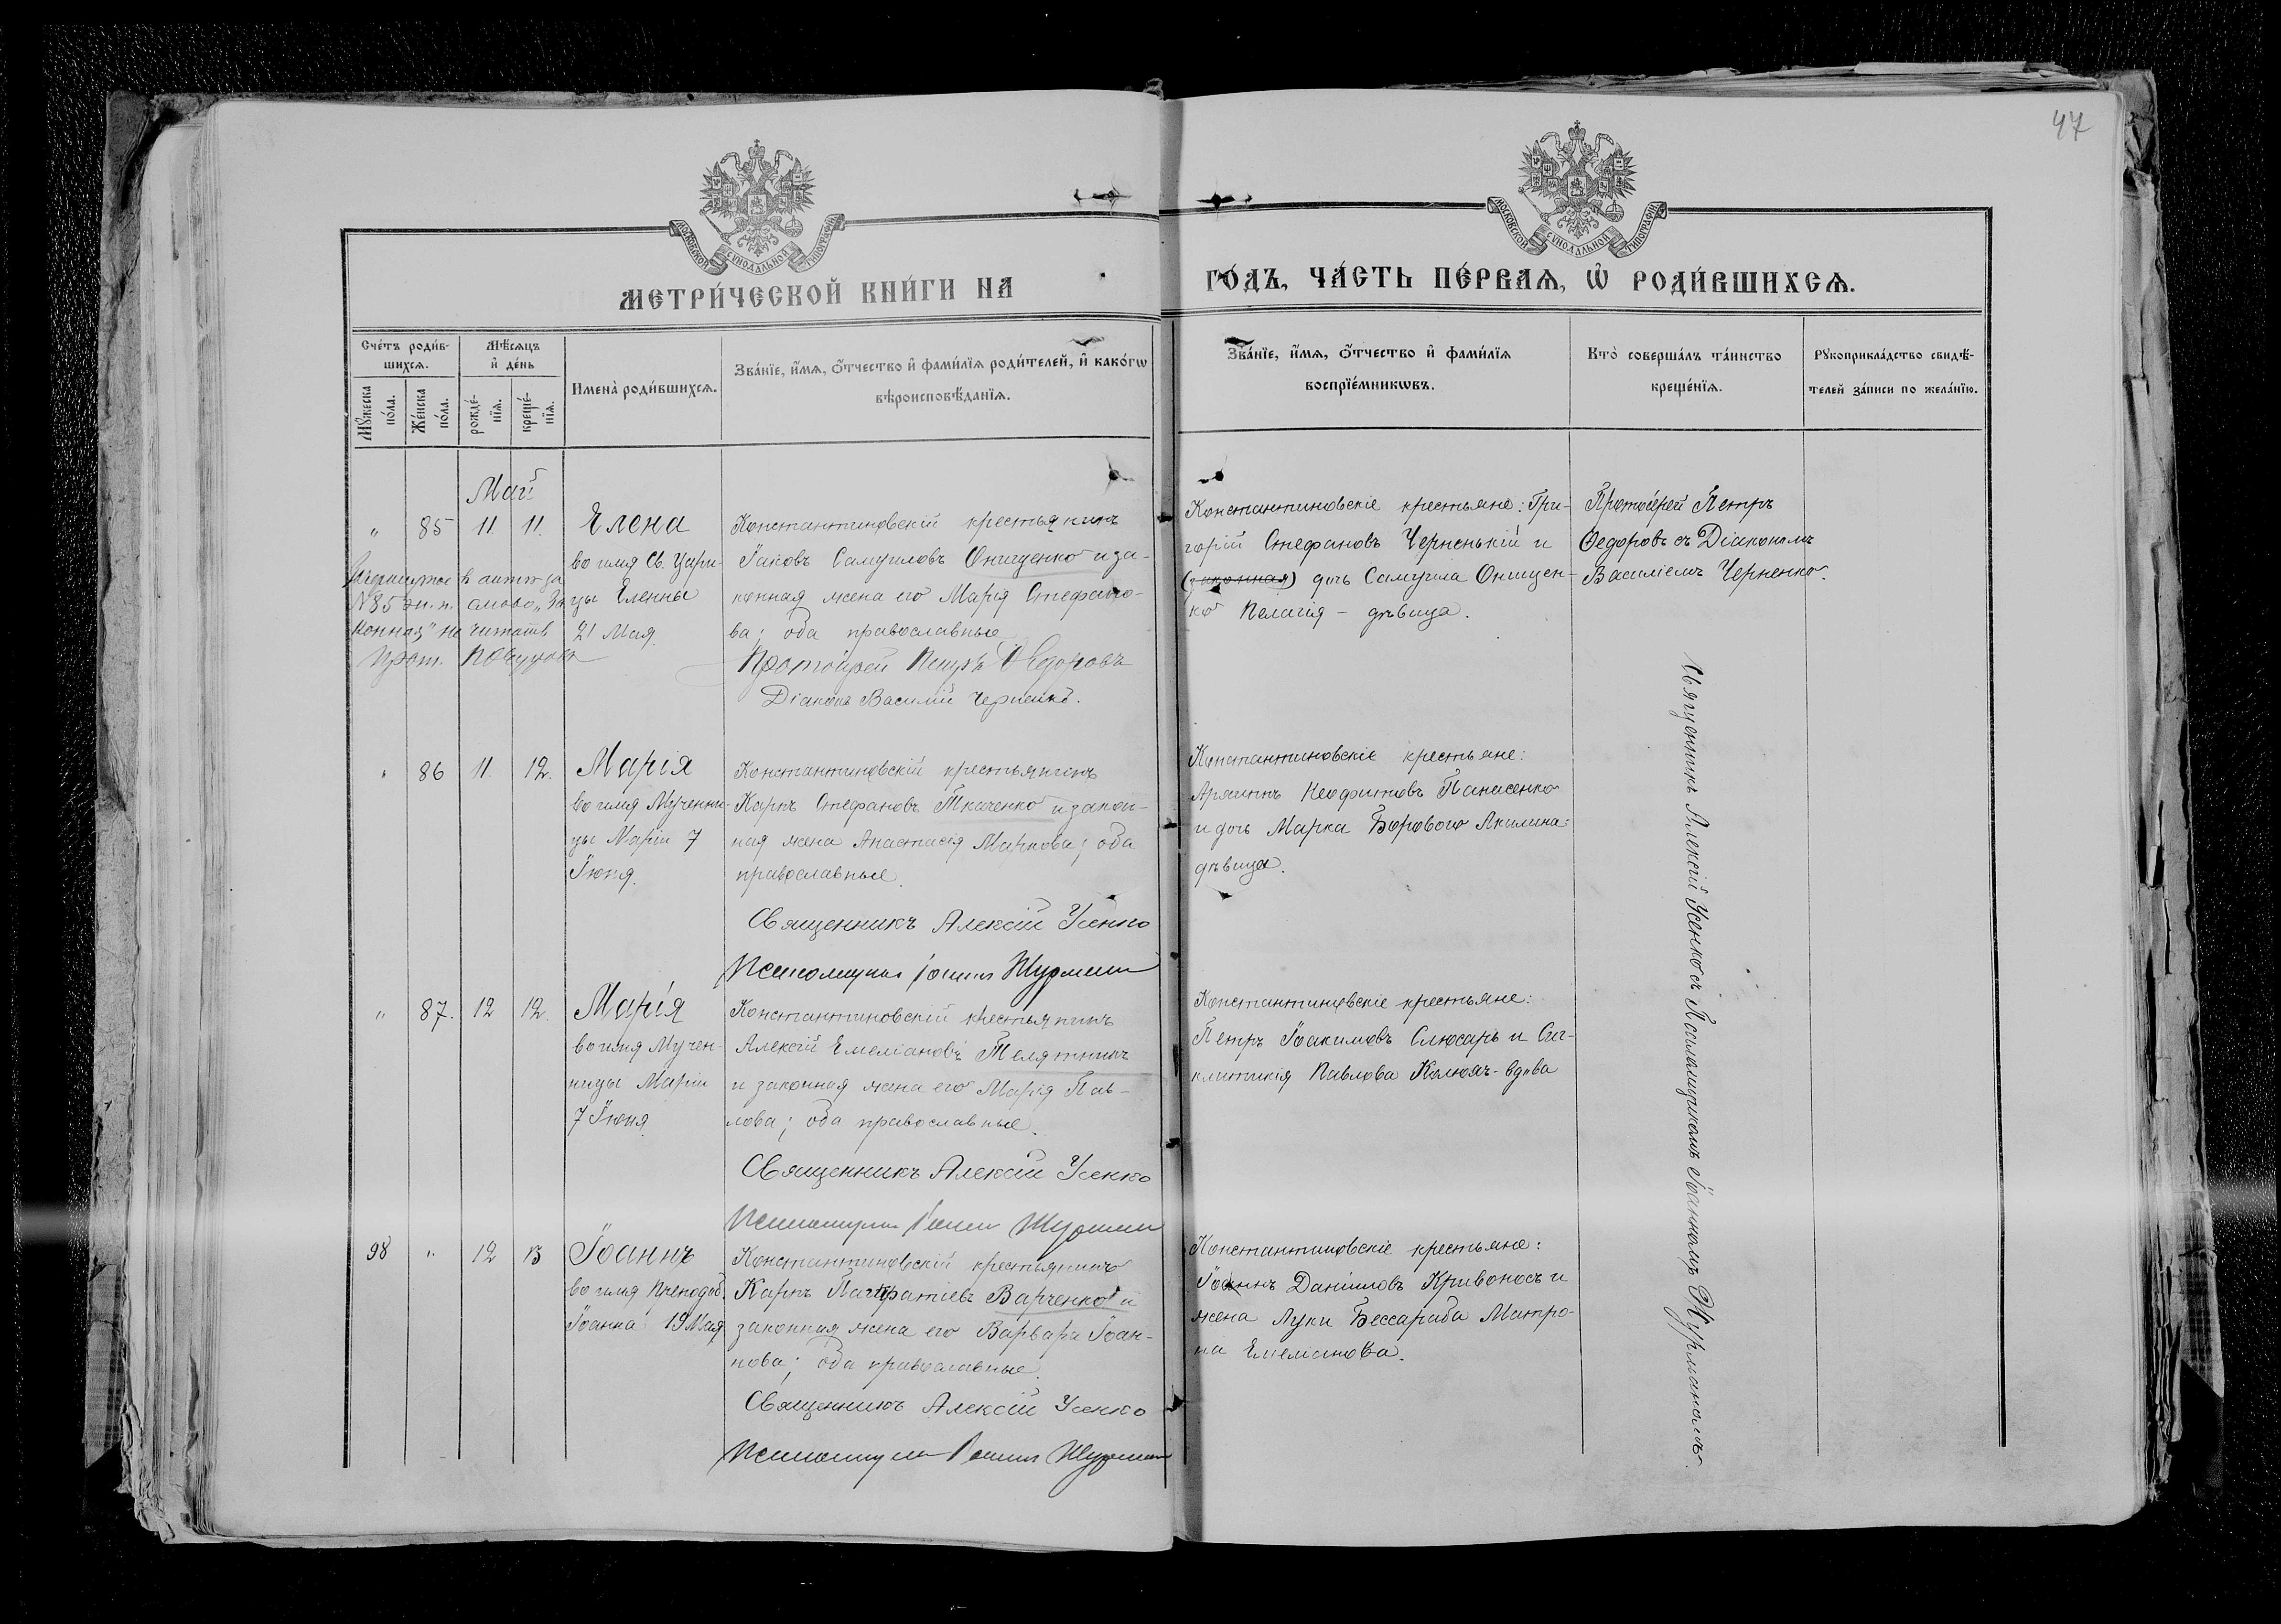 47
МОСКОВСКОЙ СУНОДАЛЬНОЙ ТИПОГРАФІИ
МОСКОВСКОЙ СУНОДАЛЬНОЙ ТИПОГРАФІИ
МЕТРИ́ЧЕСКОЙ КНИ́ГИ НА
ГО́ДЪ, ЧА́СТЬ ПЕ́РВАѦ, Ѡ҆ РОДИ́ВШИХСѦ.
Сче́тъ роди́в-
шихсѧ.
Мꙋ́жеска по́ла.
Же́нска по́ла.
Мѣ́сѧцъ
и҆ де́нь
рожде́-
нїѧ.
креще́-
нїѧ.
Имена̀ роди́вшихсѧ.
Зва́нїе, и҆́мѧ, ѻ҆́тчество и҆ фами́лїѧ роди́телей, и҆ како́гѡ
вѣроисповѣ́данїѧ.
Зва́нїе, и҆́мѧ, ѻ҆́тчество и҆ фами́лїѧ
воспрїе́мникѡвъ.
Кто̀ соверша́лъ та́инство
креще́нїѧ.
Рꙋкоприкла́дство свидѣ́-
телей за́писи по жела́нїю.
Май
" 85 11. 11. Елена
во имя Св. Цари-
цы Елены
21 Мая.
Зачеркнутое въ актѣ за
№ 85 ж. п. слово „За
конная" не читать
Прот.
Константиновскій крестьянинъ
Іаковъ Самуиловъ Онищенко и за-
конная жена его Марія Стефано-
ва; оба православные
Протоіерей Петръ Ѳедоровъ
Діаконъ Василій Черненко.
Константиновскіе крестьяне: Гри-
горій Стефановъ Черненькій и
(законная) дочь Самуила Онищен-
ко Пелагія - дѣвица.
Протоіерей Петръ
Ѳедоровъ съ Діакономъ
Василіемъ Черненко.
" 86 11. 12. Марія
во имя Мучени-
цы Маріи 7
Іюня.
Константиновскій крестьянинъ
Карпъ Стефановъ Ткаченко и закон-
ная жена Анастасія Маркова; оба
православные.
Священникъ Алексій Усенко
Псаломщикъ Іоаннъ Журманъ
Константиновскіе крестьяне:
Неофитовъ Панасенко
и дочь Марка Борового Акилина-
дѣвица.
" 87. 12 12. Марія
во имя Мучен-
ницы Маріи
7 Іюня.
Константиновскій крестьянинъ
Алексій Емеліановъ Телятникъ
и законная жена его Марія Пав-
лова; оба православные.
Священникъ Алексій Усенко
Псаломщикъ Іоаннъ Журманъ
Константиновскіе крестьяне:
Петръ Іоакимовъ Слюсарь и Син-
клитикія Павлова - вдова
98 " 12 13 Іоаннъ
во имя Преподоб.
Іоанна 19 Мая
Константиновскій крестьянинъ
Карпъ Панкратіевъ Варченко и
законная жена его Варвара Іоан-
нова; оба православные.
Священникъ Алексій Усенко
Псаломщикъ Іоаннъ Журманъ
Константиновскіе крестьяне:
Іоаннъ Даніиловъ Кривоносъ и
жена Луки Бессараба Матро-
на Емеліанова.
Священникъ Алексій Усенко съ Псаломщикомъ Іоанномъ Журманомъ.